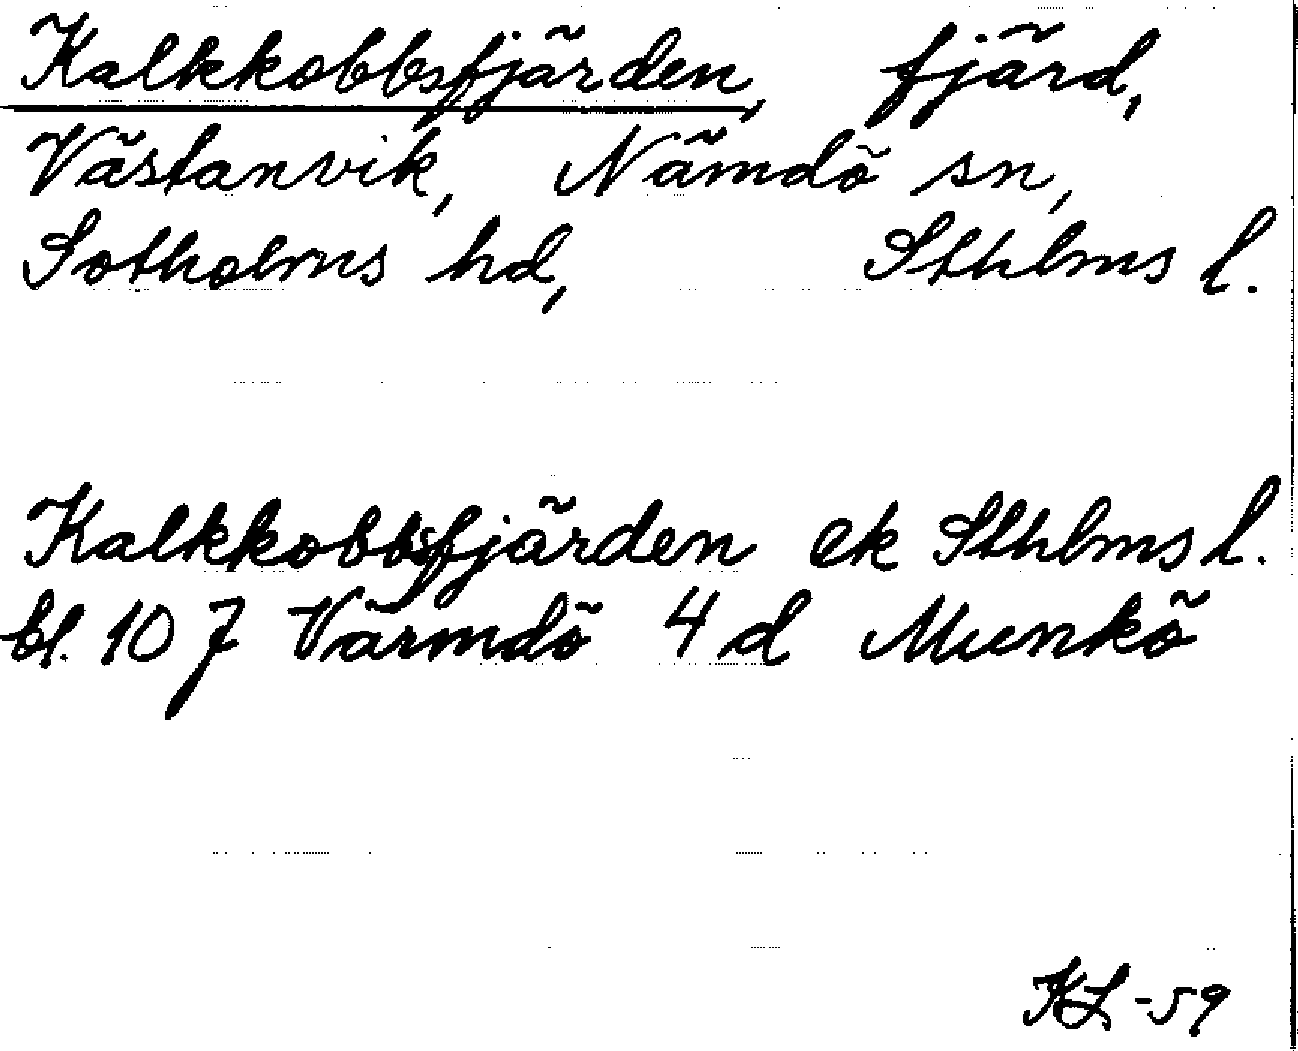 Kalkkobbsfjärden, fjärd,
Västanvik, Nämdö sn,
Sotholms hd, Sthlms l.
Kalkkobbsfjärden ek Sthlms l.
bl. 107 Värmdö 4 d Munkö
KL -59